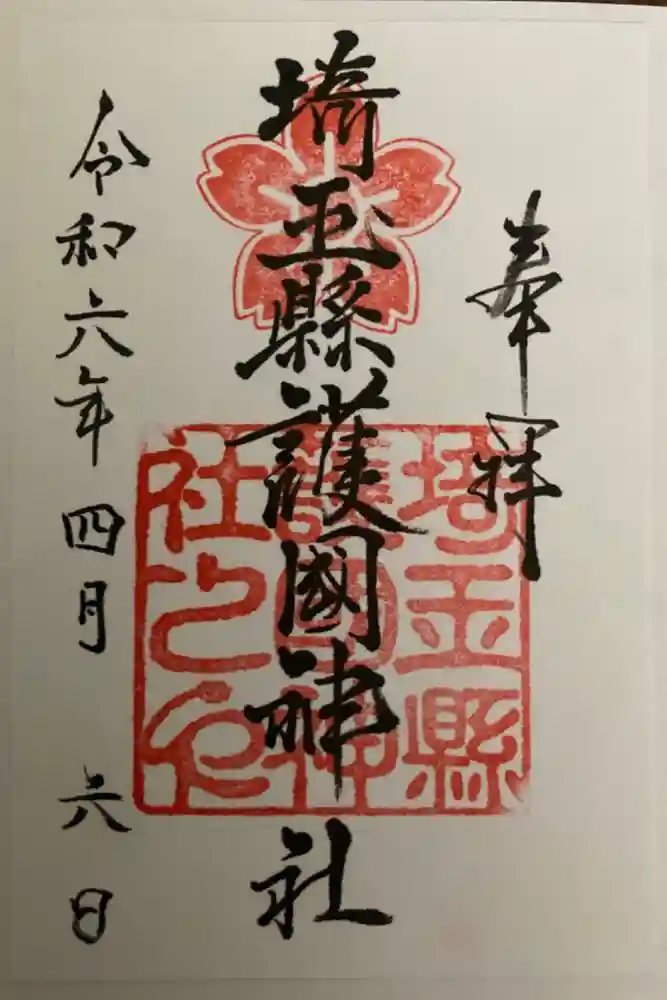 奉拝
埼玉縣護國神社
埼玉縣
護國神
社之印
令和六年四月六日